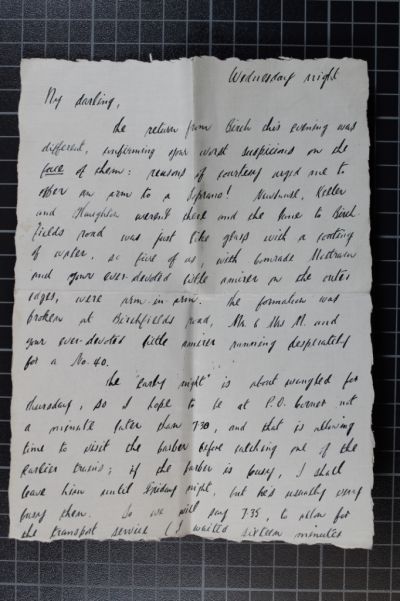 Wednesday night
My darling,
The return from Birch this evening was
different, confirming your worst suspicions on the
face of them: reasons of courtesy urged me to
offer an arm to a Soprano! Keller
and weren't there and the lane to Birch
fields road was just like glass with a coating
of water, so five of us, with Comrade
and your ever-devoted little admirer on the outer
edges, were arm-in-arm. The formation was
broken at Birchfields road, Mr. & Mrs M. and
your ever-devoted little admirer running desperately
for a No. 40.
The "early night" is about wangled for
Thursday, so I hope to be at P.O. Corner not
a minute later than 7.30, and that is allowing
time to visit the barber before catching one of the
earlier trains; if the barber is busy, I shall
leave him until Friday night, but he's usually very
busy then. So we will say 7.35, to allow for
the transport service (I waited sixteen minutes